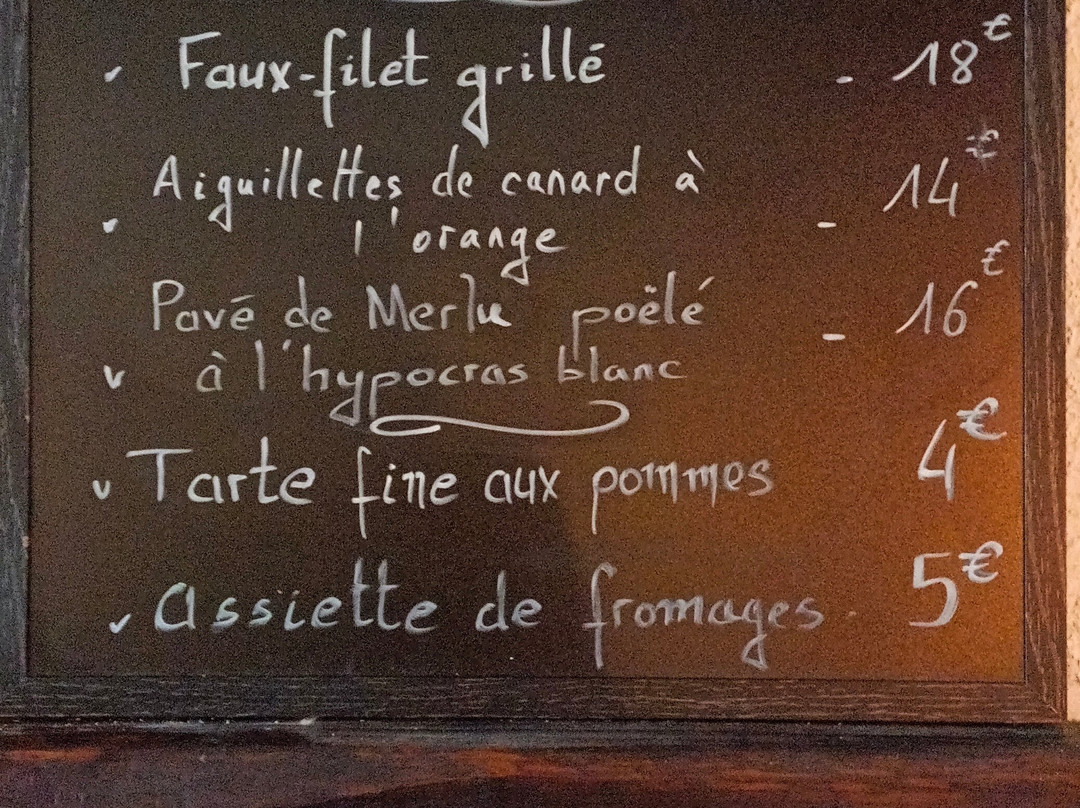 Faux-filet grillé - 18€
Aiguillettes de canard à
l'orange - 14€
Pavé de Merlu poëlé - 16€
à l'hypocras blanc
Tarte fine aux pommes 4€
Assiette de fromages 5€